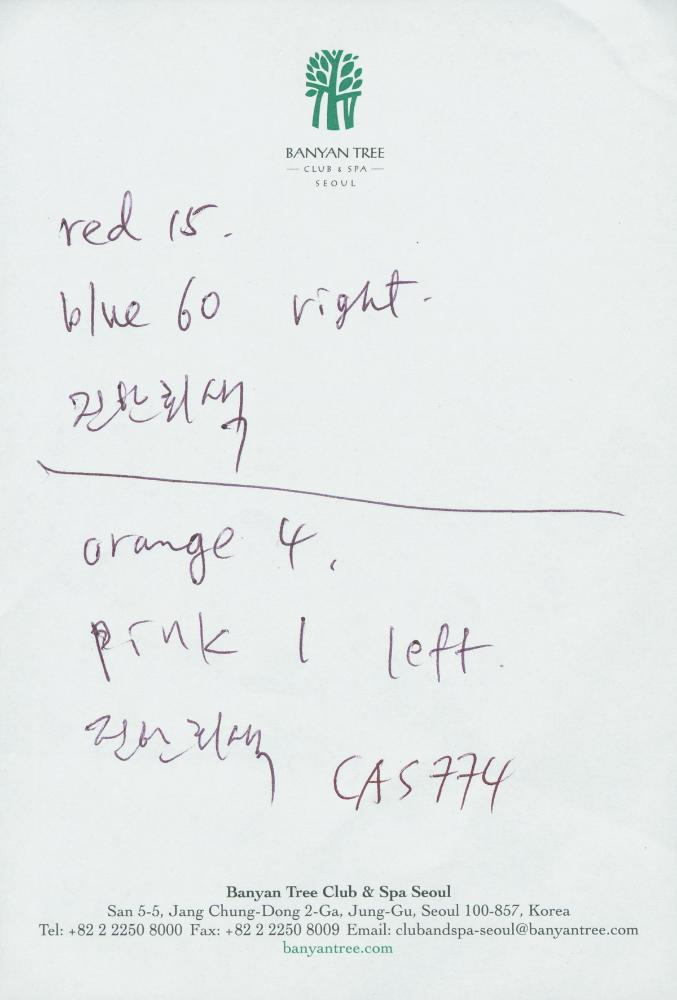 BANYAN TREE
CLUB & SPA
SEOUL
red 15.
blue 60 right.
진한회색
orange 4.
pink 1 left.
진한회색
CAS774
Banyan Tree Club & Spa Seoul
San 5-5, Jang Chung-Dong 2-Ga, Jung-Gu, Seoul 100-857, Korea
Tel: +82 2 2250 8000 Fax: +82 2 2250 8009 Email: clubandspa-seoul@banyantree.com
banyantree.com